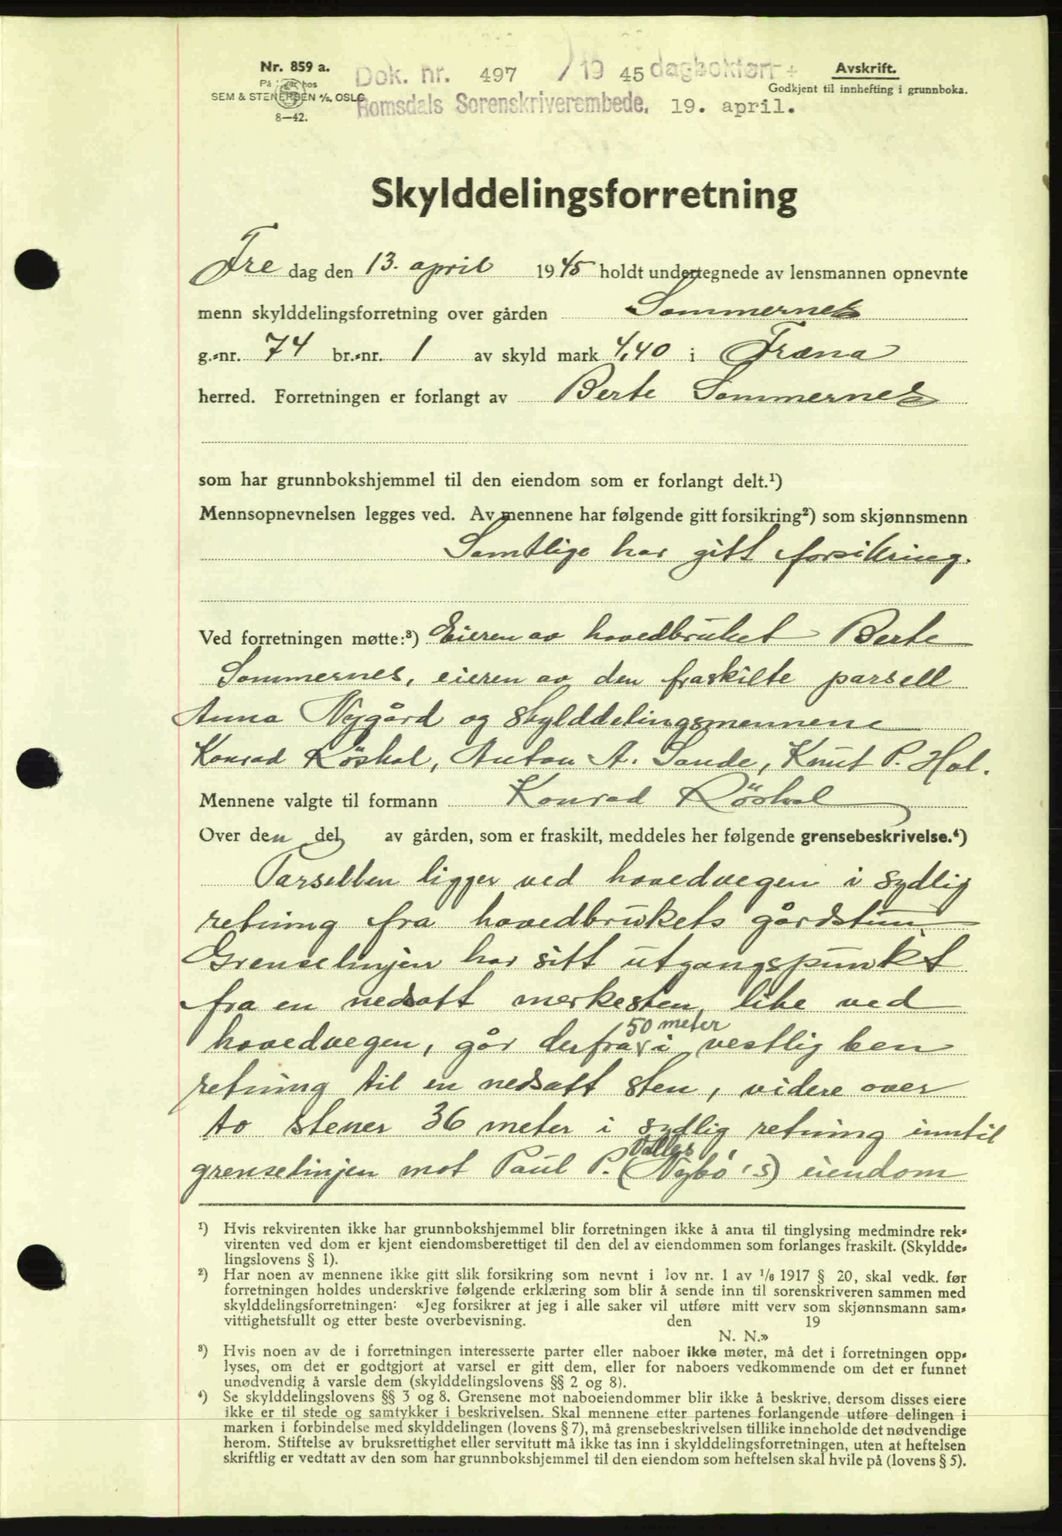 Nr. 859 a.
På lager hos
SEM & STENERSEN A/S, OSLO
8—42.
Dok. nr. 497 / 19 45 dagbokført
Romsdals Sorenskriverembede, 19. april.
Avskrift.
Godkjent til innhefting i grunnboka.
Skylddelingsforretning
Fre dag den 13. april 1945 holdt undertegnede av lensmannen opnevnte
menn skylddelingsforretning over gården Sommernes
g.-nr. 74 br.-nr. 1 av skyld mark 4,40 i Fræna
herred. Forretningen er forlangt av Berte Sommernes
som har grunnbokshjemmel til den eiendom som er forlangt delt.¹)
Mennsopnevnelsen legges ved. Av mennene har følgende gitt forsikring²) som skjønnsmenn
Samtlige har gitt forsikring.
Ved forretningen møtte:³) Eieren av hovedbruket Berte
Sommernes, eieren av den fraskilte parsell
Anna Nygård og skylddelingsmennene
Konrad Röshol, Anton A. Sande, Knut P. Hol.
Mennene valgte til formann Konrad Röshol
Over den del av gården, som er fraskilt, meddeles her følgende grensebeskrivelse.⁴)
Parsellen ligger ved hovedvegen i sydlig
retning fra hovedbrukets gårdstun.
Grenselinjen har sitt utgangspunkt
fra en nedsatt merkesten like ved
50 meter
hovedvegen, går derfra i vestlig ben
retning til en nedsatt sten, videre over
to stener 36 meter i sydlig retning inntil
grenselinjen mot Paul P. (Nybø's) eiendom
¹) Hvis rekvirenten ikke har grunnbokshjemmel blir forretningen ikke å anta til tinglysing medmindre rek-
virenten ved dom er kjent eiendomsberettiget til den del av eiendommen som forlanges fraskilt. (Skyldde-
lingslovens § 1).
²) Har noen av mennene ikke gitt slik forsikring som nevnt i lov nr. 1 av ¹/₆ 1917 § 20, skal vedk. før
forretningen holdes underskrive følgende erklæring som blir å sende inn til sorenskriveren sammen med
skylddelingsforretningen: «Jeg forsikrer at jeg i alle saker vil utføre mitt verv som skjønnsmann sam-
vittighetsfullt og etter beste overbevisning. den 19
N. N.»
³) Hvis noen av de i forretningen interesserte parter eller naboer ikke møter, må det i forretningen opp-
lyses, om det er godtgjort at varsel er gitt dem, eller for naboers vedkommende om det er funnet
unødvendig å varsle dem (skylddelingslovens §§ 2 og 8).
⁴) Se skylddelingslovens §§ 3 og 8. Grensene mot naboeiendommer blir ikke å beskrive, dersom disses eiere
ikke er til stede og samtykker i beskrivelsen. Skal mennene etter partenes forlangende utføre delingen i
marken i forbindelse med skylddelingen (lovens § 7), må grensebeskrivelsen tillike inneholde det nødvendige
herom. Stiftelse av bruksrettighet eller servitutt må ikke tas inn i skylddelingsforretningen, uten at heftelsen
skriftlig er vedtatt av den som har grunnbokshjemmel til den eiendom som heftelsen skal hvile på (lovens § 5).